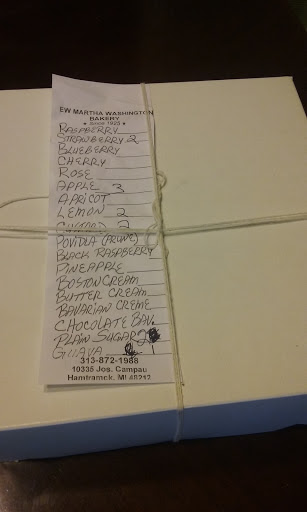 EW MARTHA WASHINGTON
BAKERY
★ Since 1925 ★
RASPBERRY
STRAWBERRY 2
BLUEBERRY
CHERRY
ROSE
APPLE 3
APRICOT
LEMON 2
CUSTARD 2
POVIDLA (PRUNE)
BLACK RASPBERRY
PINEAPPLE
BOSTON CREAM
BUTTER CREAM
BAVARIAN CREME
CHOCOLATE BAV.
PLAIN SUGAR 2
GUAVA 1
313-872-1988
10335 Jos. Campau
Hamtramck, MI 48212